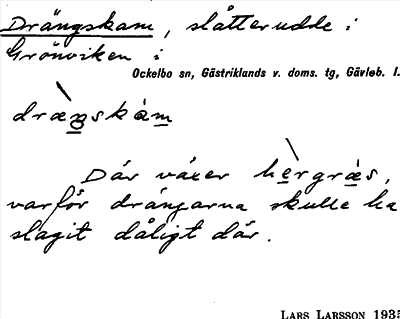 Drängskam, slåtterudde i
Grönviken i
Ockelbo sn, Gästriklands v. doms. tg, Gävleb. l.
dræŋskàm
Där växer hergræs,
varför drängarna skulle ha
slagit dåligt där.
LARS LARSSON 1935